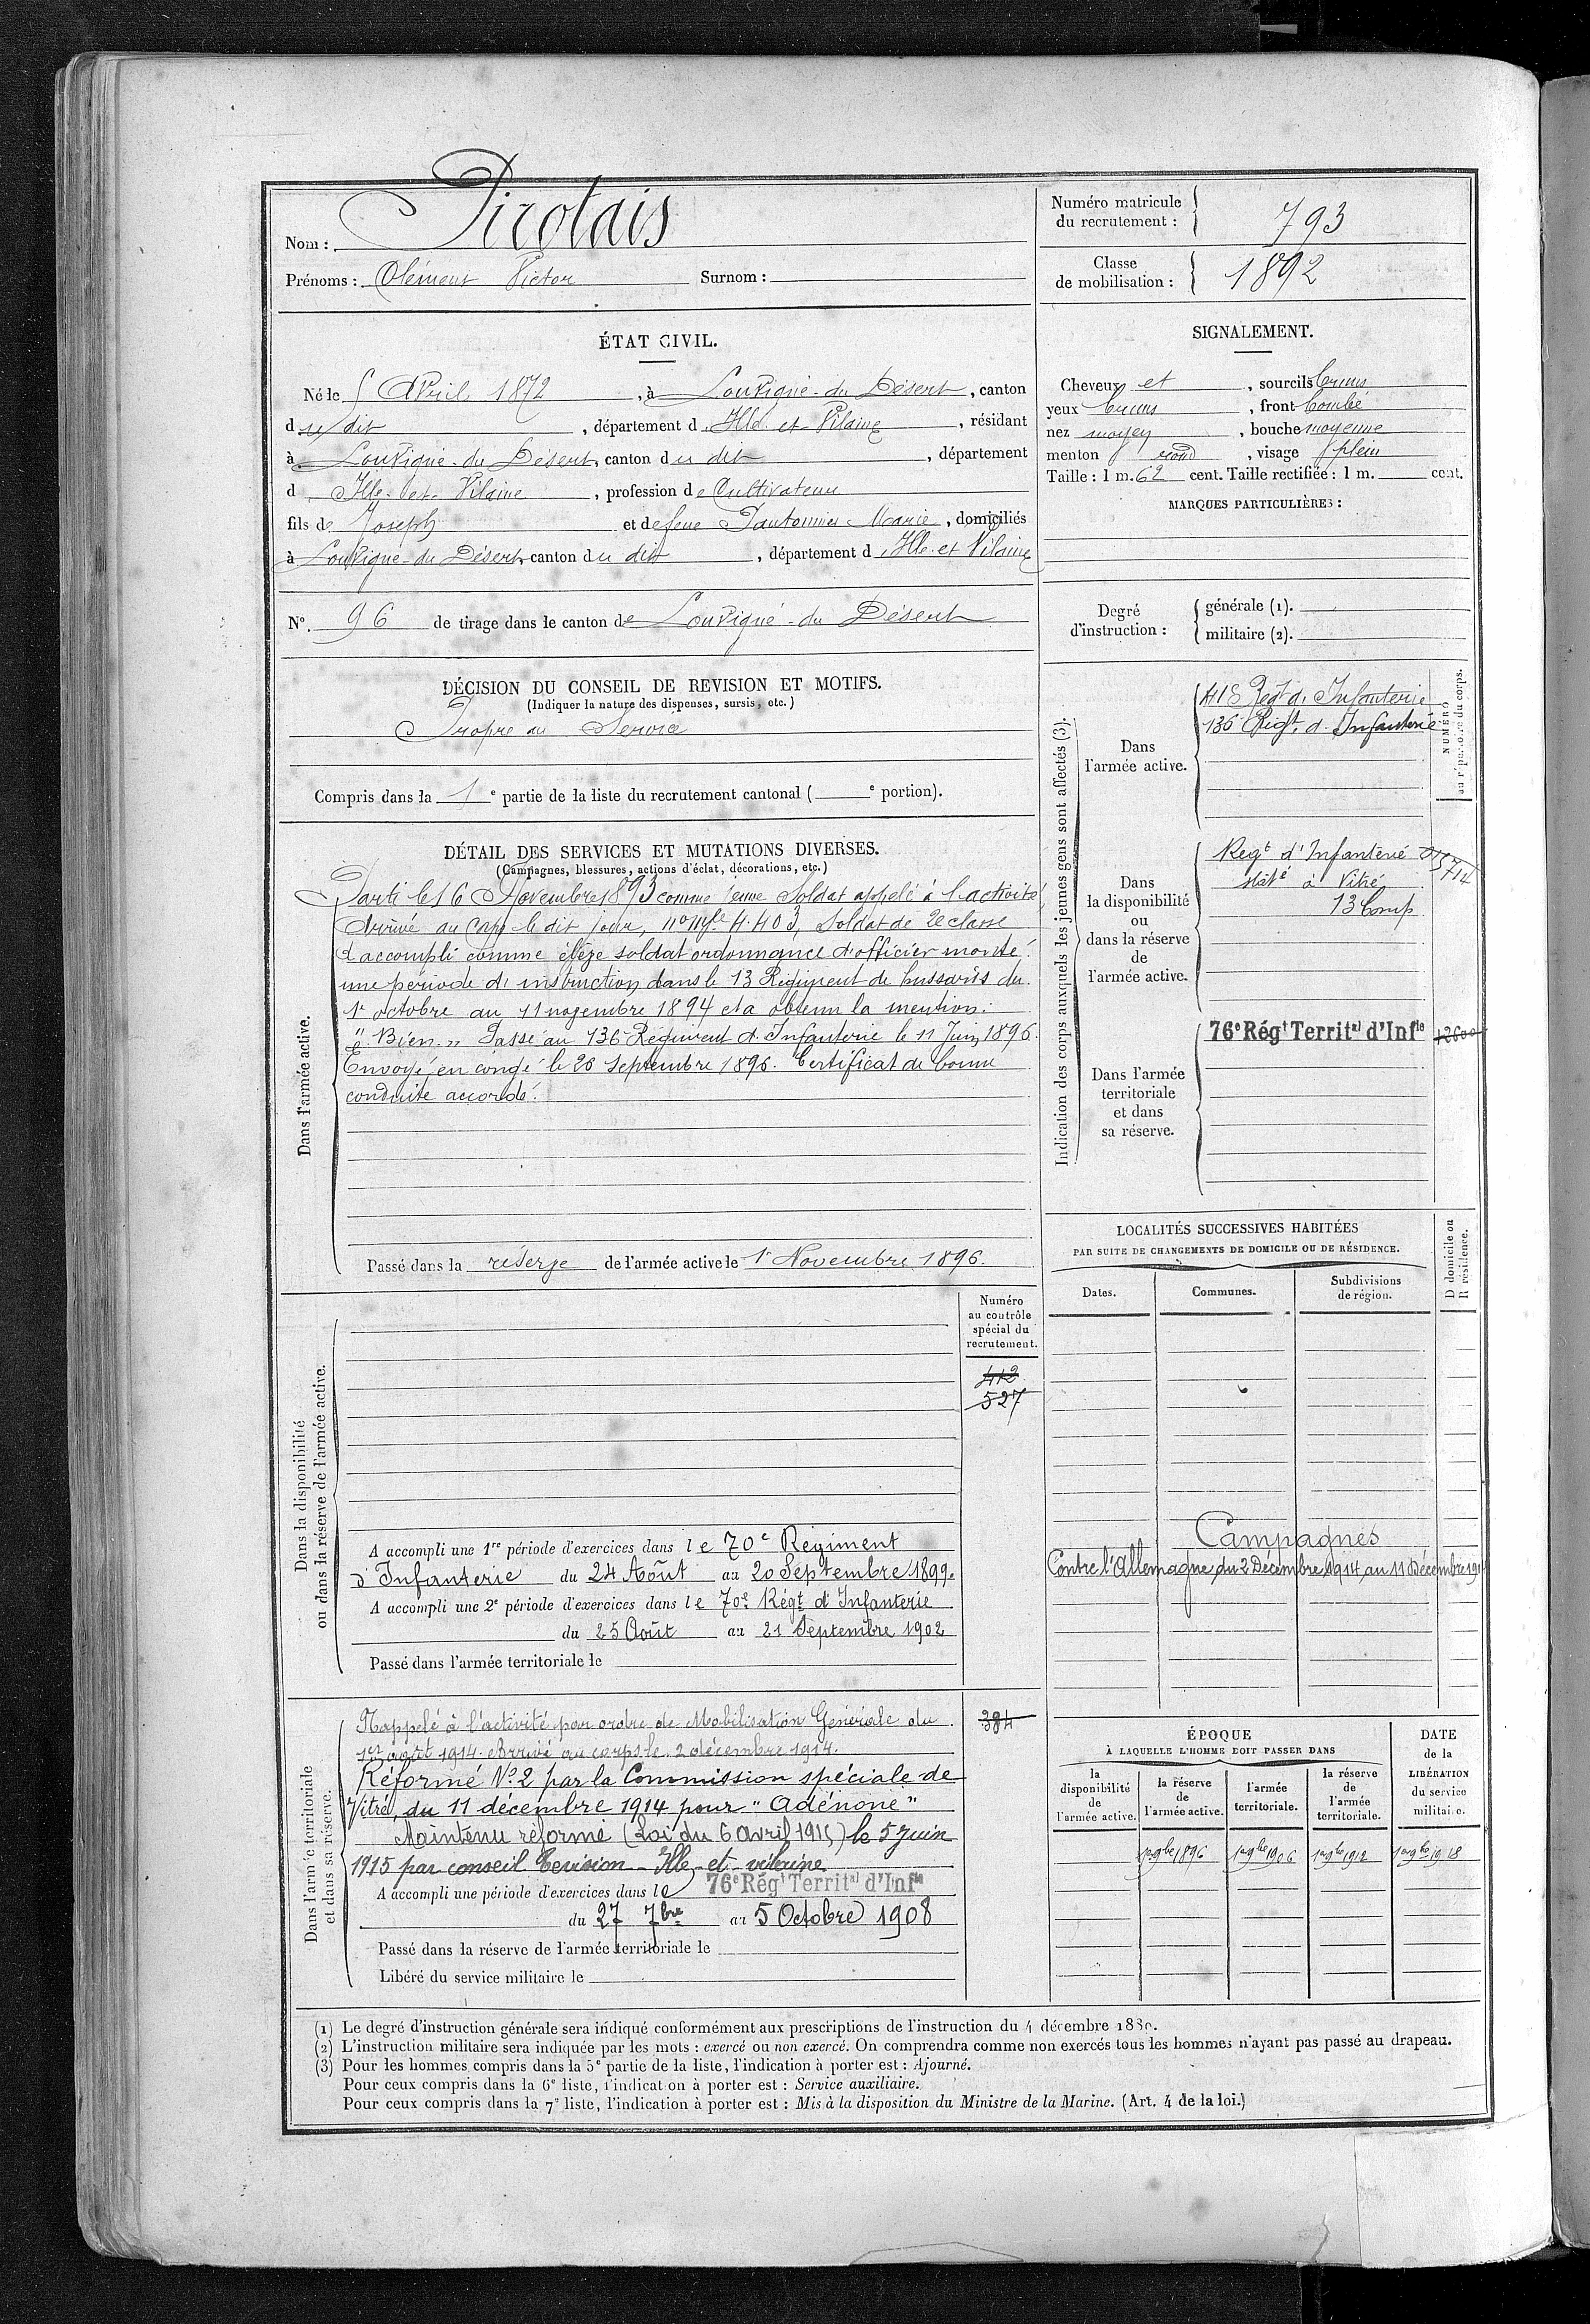 Nom : Pirotais
Prénoms : Clément Victor Surnom :
Numéro matricule du recrutement : 793
Classe de mobilisation : 1892
ÉTAT CIVIL.
Né le 5 Avril 1872, à Louvigné-du-Désert, canton
du dit, département d'Ille-et-Vilaine, résidant
à Louvigné-du-Désert, canton du dit, département
d'Ille-et-Vilaine, profession de Cultivateur
fils de Joseph et de feue Marie, domiciliés
à Louvigné-du-Désert, canton du dit, département d'Ille-et-Vilaine
N° 96 de tirage dans le canton de Louvigné-du-Désert
SIGNALEMENT.
Cheveux et, sourcils bruns
yeux bruns, front bombé
nez moyen, bouche moyenne
menton rond, visage plein
Taille : 1 m. 62 cent. Taille rectifiée : 1 m. cent.
MARQUES PARTICULIÈRES :
Degré d'instruction : générale (1).
militaire (2).
DÉCISION DU CONSEIL DE REVISION ET MOTIFS.
(Indiquer la nature des dispenses, sursis, etc.)
Propre au Service
Compris dans la 1e partie de la liste du recrutement cantonal ( e portion).
DÉTAIL DES SERVICES ET MUTATIONS DIVERSES.
(Campagnes, blessures, actions d'éclat, décorations, etc.)
Dans l'armée active.
Parti le 16 Novembre 1893 comme jeune Soldat appelé à l'activité,
Arrivé au Corps le dit jour, n° mle 4.403, Soldat de 2e classe
a accompli comme élève soldat ordonnance d'officier monté
une période d'instruction dans le 13 Régiment de hussards du
1r octobre au 11 novembre 1894 et a obtenu la mention:
"Bien." Passé au 136e Régiment d'Infanterie le 11 Juin 1896.
Envoyé en congé le 20 Septembre 1896. Certificat de bonne
conduite accordé.
Passé dans la réserve de l'armée active le 1r Novembre 1896.
Indication des corps auxquels les jeunes gens sont affectés (3).
NUMÉRO au répertoire du corps.
Dans l'armée active.
Regt d'Infanterie
136 Regt. d'Infanterie
Dans la disponibilité ou dans la réserve de l'armée active.
Regt d'Infanterie
staté à Vitré
13 Comp
Dans l'armée territoriale et dans sa réserve.
76e Régt Territal d'Infie
LOCALITÉS SUCCESSIVES HABITÉES
PAR SUITE DE CHANGEMENTS DE DOMICILE OU DE RÉSIDENCE.
Dates. Communes. Subdivisions de région. D domicile ou R résidence.
Campagnes
Contre l'Allemagne, du 2 Décembre 1914, au 11 Décembre 1914
Dans la disponibilité ou dans la réserve de l'armée active.
Numéro au contrôle spécial du recrutement.
412
527
A accompli une 1re période d'exercices dans le 70e Régiment
d'Infanterie du 24 Août au 20 Septembre 1899.
A accompli une 2e période d'exercices dans le 70e Régt d'Infanterie
du 25 Août au 21 Septembre 1902
Passé dans l'armée territoriale le
Dans l'armée territoriale et dans sa réserve.
384
Rappelé à l'activité par ordre de Mobilisation Générale du
1er août 1914. Arrivé au corps le 2 décembre 1914.
Réformé N° 2 par la Commission spéciale de
Vitré, du 11 décembre 1914 pour "Adénome"
Maintenu réformé (Loi du 6 avril 1915) le 5 juin
1915 par conseil Revision Ille-et-Vilaine
A accompli une période d'exercices dans le 76e Régt Territal d'Infie
du 27 7bre au 5 Octobre 1908
Passé dans la réserve de l'armée territoriale le
Libéré du service militaire le
ÉPOQUE
À LAQUELLE L'HOMME DOIT PASSER DANS
la disponibilité de l'armée active.
la réserve de l'armée active.
l'armée territoriale.
la réserve de l'armée territoriale.
DATE de la LIBÉRATION du service militaire.
1er 9bre 1896 1er 9bre 1906 1er 9bre 1912 1er 9bre 1918
(1) Le degré d'instruction générale sera indiqué conformément aux prescriptions de l'instruction du 4 décembre 1889.
(2) L'instruction militaire sera indiquée par les mots : exercé ou non exercé. On comprendra comme non exercés tous les hommes n'ayant pas passé au drapeau.
(3) Pour les hommes compris dans la 5e partie de la liste, l'indication à porter est : Ajourné.
Pour ceux compris dans la 6e liste, l'indication à porter est : Service auxiliaire.
Pour ceux compris dans la 7e liste, l'indication à porter est : Mis à la disposition du Ministre de la Marine. (Art. 4 de la loi.)